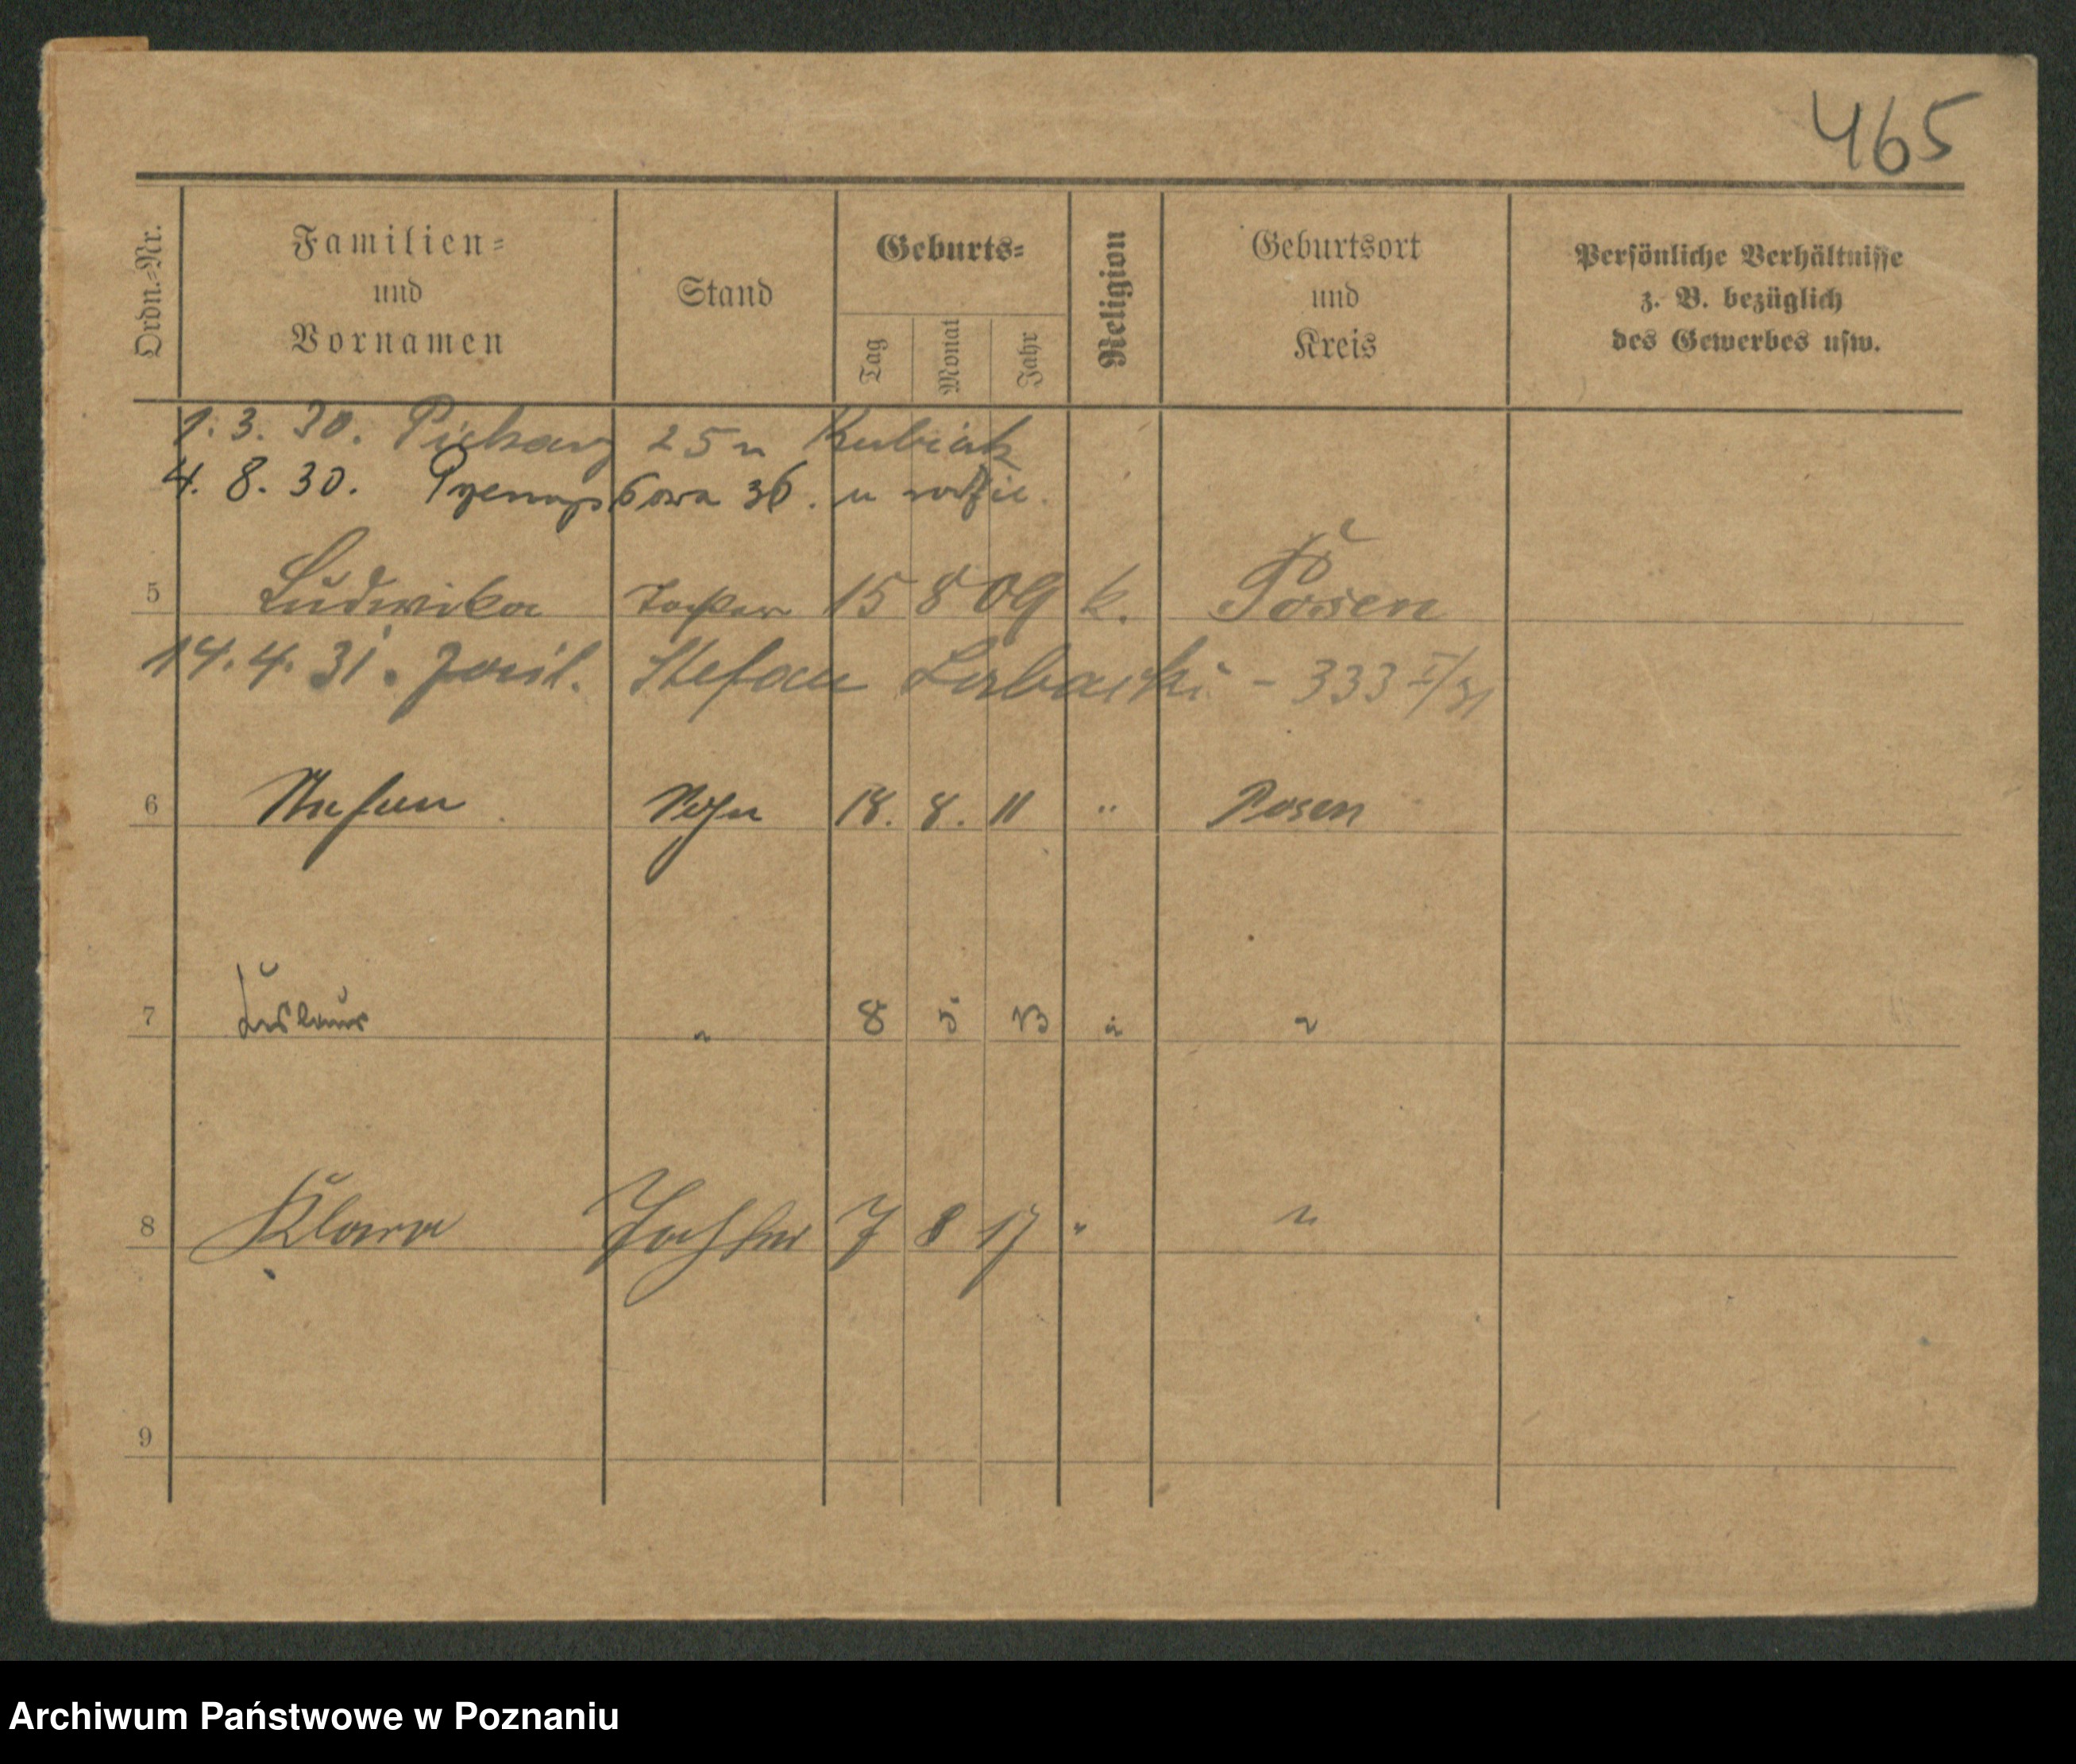 465
Ordn.-Nr.
Familien-
und
Vornamen
Stand
Geburts-
Tag
Monat
Jahr
Religion
Geburtsort
und
Kreis
Persönliche Verhältnisse
z. B. bezüglich
des Gewerbes usw.
1. 3. 30. Piekary 25 u Kubiak
4. 8. 30. 36. u rodzic.
5 Ludwika Tochter 15 8 09 k. Posen
14. 4. 31. Stefan - 333 I/31
6 Stefan Sohn 18. 8. 11 " Posen
7 " 8 5 13 " "
8 Klara Tochter 7 8 17 " "
9
Archiwum Państwowe w Poznaniu